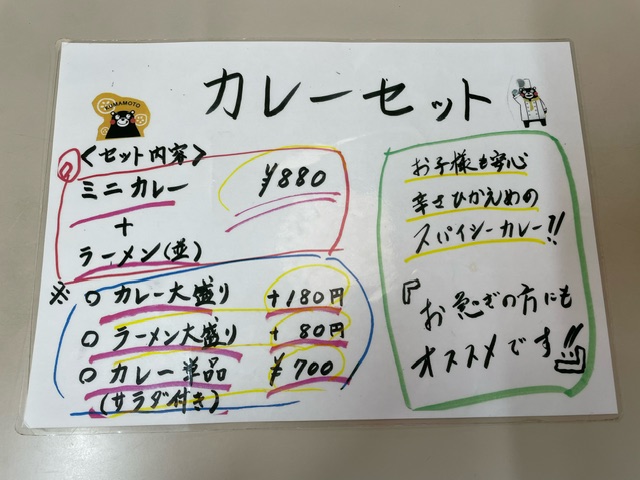 カレーセット
KUMAMOTO
<セット内容>
ミニカレー ¥880
+
ラーメン(並)
※ ○ カレー大盛り +180円
○ ラーメン大盛り + 80円
○ カレー単品 ¥700
(サラダ付き)
お子様も安心
辛さひかえめの
スパイシーカレー!!
『お急ぎの方にも
オススメです!!』